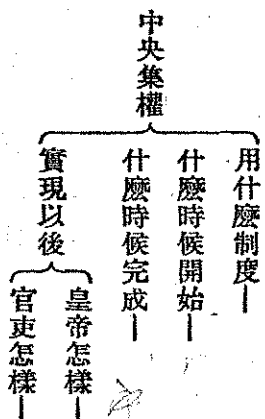 中央集權
用什麼制度—
什麼時候開始—
什麼時候完成—
實現以後
皇帝怎樣—
官吏怎樣—